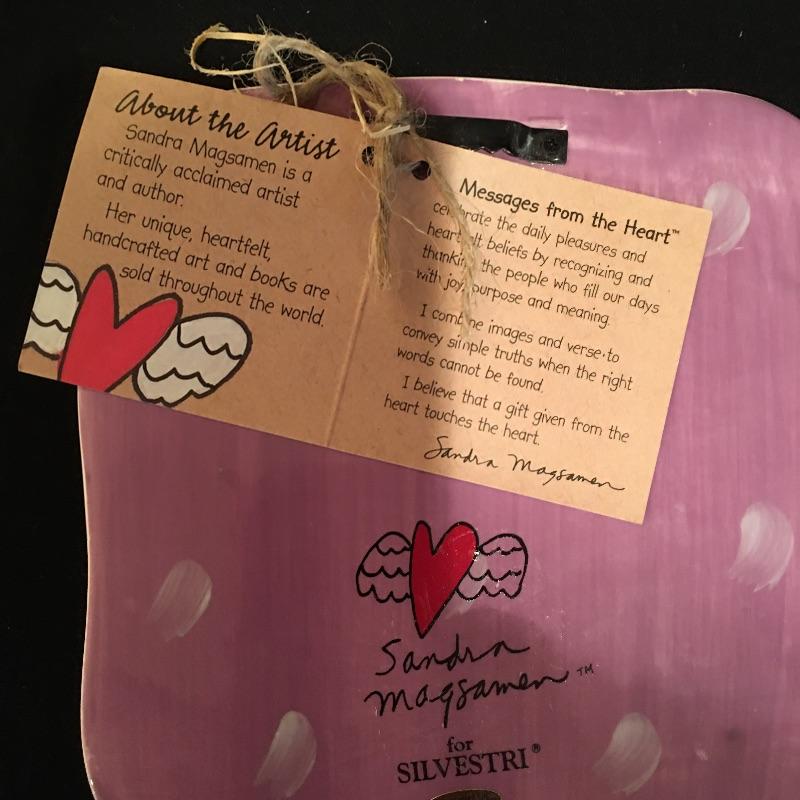 About the Artist
Sandra Magsamen is a
critically acclaimed artist
and author.
Her unique, heartfelt,
handcrafted art and books are
sold throughout the world.
Messages from the Heart™
celebrate the daily pleasures and
heartfelt beliefs by recognizing and
thanking the people who fill our days
with joy, purpose and meaning.
I combine images and verse to
convey simple truths when the right
words cannot be found.
I believe that a gift given from the
heart touches the heart.
Sandra Magsamen
Sandra
Magsamen™
for
SILVESTRI®